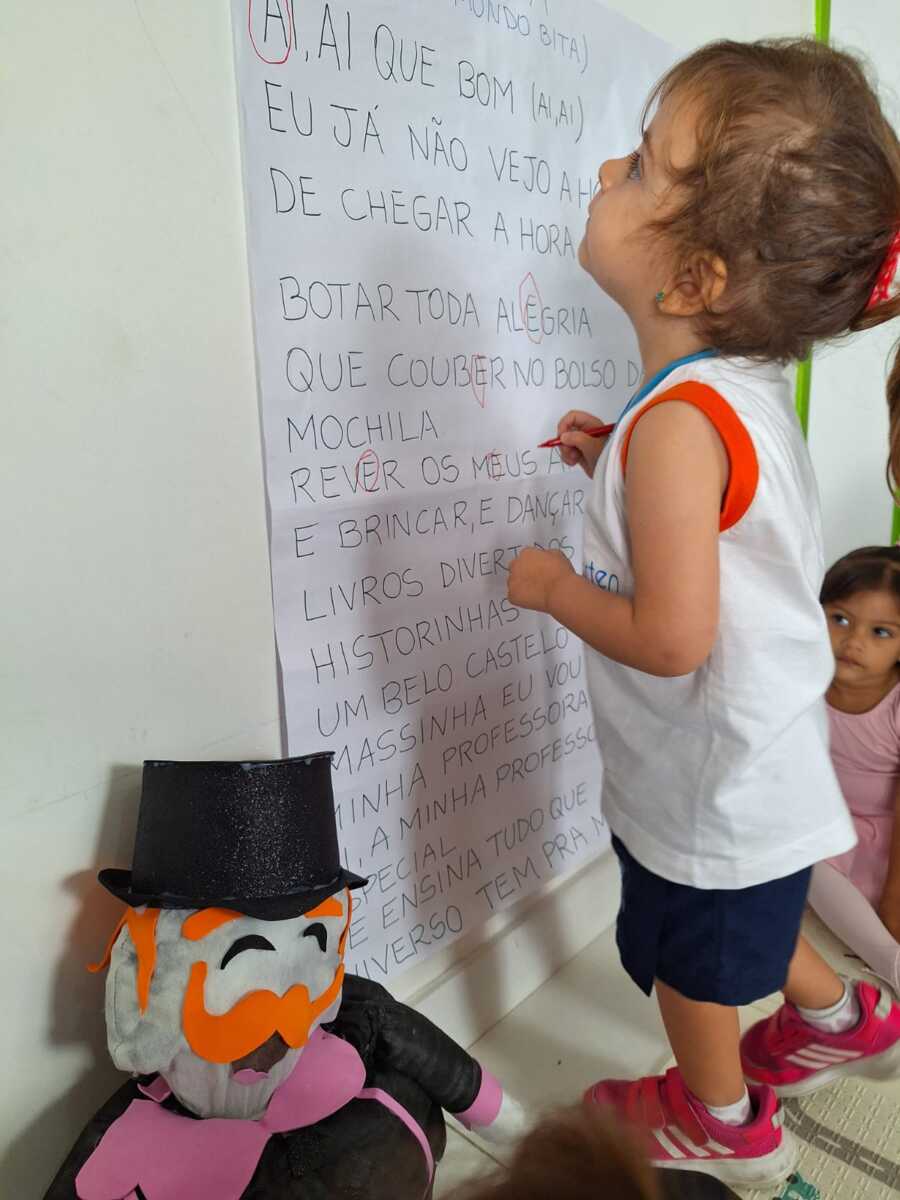 MUNDO BITA)
AI, AI QUE BOM (AI, AI)
EU JÁ NÃO VEJO A
DE CHEGAR A HORA
BOTAR TODA ALEGRIA
QUE COUBER NO BOLSO
MOCHILA
REVER OS MEUS
E BRINCAR, E DANÇAR
LIVROS DIVERTIDOS
HISTORINHAS
UM BELO CASTELO
MASSINHA EU VOU
MINHA PROFESSORA
A MINHA
ESPECIAL
ENSINA TUDO QUE
TEM PRA